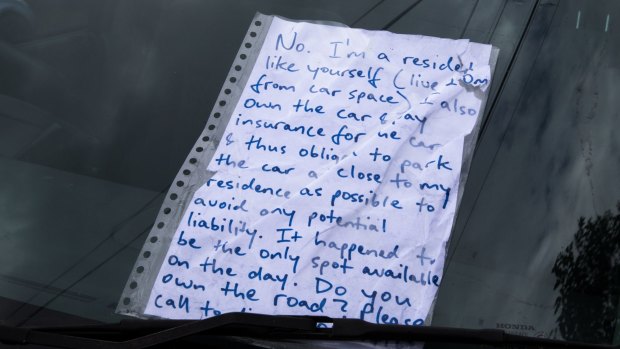 No. I'm a resident
like yourself (live 10m
from car space) I also
own the car & pay
insurance for the car
& thus oblig to park
the car a close to my
residence as possible to
avoid any potential
liability. It happened to
be the only spot available
on the day. Do you
own the road? Please
call to
HONDA